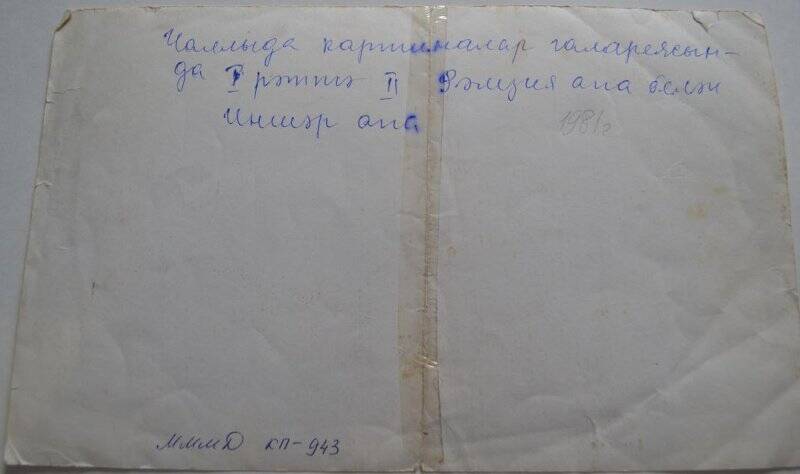 Чаллыда картиналар галареясын-
да I рәттә II Рәмзия апа белән
Иншәр апа
1981г
МММД КП-943